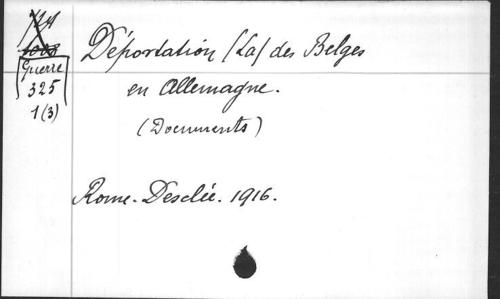 Déportation (La) des Belges
Guerre
325
1(3)
en Allemagne.
(Documents)
Rome. Desclée. 1916.